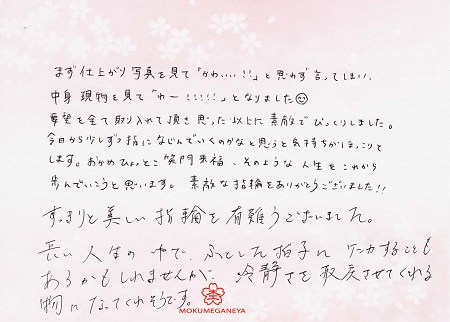 まず仕上がり写真を見て「かわいい!!」と思わず言ってしまい、
中身現物を見て「わー!!!!!」となりました☺
希望を全て取り入れて頂き思った以上に素敵でびっくりしました。
今日から少しずつ指になじんでいくのかなと思うと気持ちがほっこりと
します。おかめひょっとこ笑門来福、そのような人生をこれから
歩んでいこうと思います。素敵な指輪をありがとうございました!!
すっきりと美しい指輪を有難うございました。
長い人生の中で、ふとした拍子にケンカすることも
あるかもしれませんが、冷静さを取戻させてくれる
物になってくれそうです。
MOKUMEGANEYA